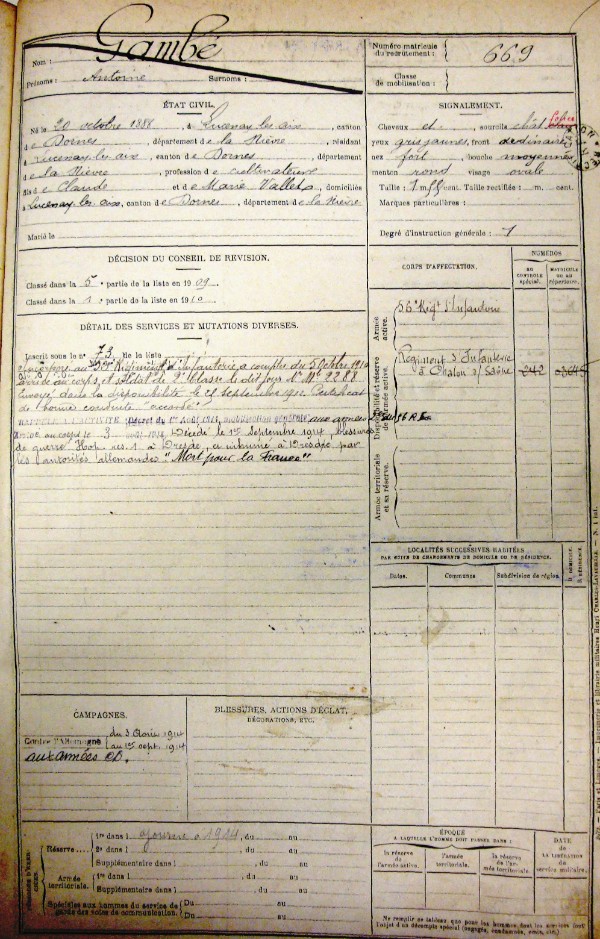 Gambé
Nom :
Prénoms : Antoine Surnoms :
Numéro matricule du recrutement : 669
Classe de mobilisation :
ÉTAT CIVIL.
Né le 20 octobre 1888, à Lucenay les aix, canton
de Dornes, département de la Nièvre, résidant
à Lucenay les aix, canton de Dornes, département
de la Nièvre, profession de cultivateur
fils de Claude et de Marie Vallet, domiciliés
à Lucenay les aix, canton de Dornes, département de la Nièvre
Marié le
SIGNALEMENT.
Cheveux et sourcils chât
yeux gris jaunes, front ordinaire
nez fort, bouche moyenne
menton rond visage ovale
Taille : 1 m. cent. Taille rectifiée : m. cent.
Marques particulières :
Degré d'instruction générale : 1
DÉCISION DU CONSEIL DE REVISION.
Classé dans la 5e partie de la liste en 1909
Classé dans la 1e partie de la liste en 1910
DÉTAIL DES SERVICES ET MUTATIONS DIVERSES.
Inscrit sous le no 73 de la liste
Incorporé au Régiment d'Infanterie à compter du 5 Octobre 1910
arrivé au corps et soldat de 2e classe le dit jour No Mle 2288
Envoyé dans la disponibilité le 25 Septembre 1912. Certificat
de bonne conduite "accordé"
RAPPELÉ À L'ACTIVITÉ (Décret du 1er Août 1914, MOBILISATION GÉNÉRALE aux armées
Arrivé au corps le 3 août 1914. Décédé le 1er Septembre 1914, blessures
de guerre Hop. res. 1 à Dresde, inhumé à Dresde par
les autorités allemandes "Mort pour la France"
CORPS D'AFFECTATION.
NUMÉROS
AU CONTRÔLE spécial.
MATRICULE OU AU répertoire.
Armée active.
56e Régt d'Infanterie
Disponibilité et réserve de l'armée active.
Régiment d'Infanterie
à Chalon s/ Saône 242
Armée territoriale et sa réserve.
LOCALITÉS SUCCESSIVES HABITÉES
PAR SUITE DE CHANGEMENTS DE DOMICILE OU DE RÉSIDENCE.
Dates. Communes Subdivision de région. D. DOMICILE. R. RÉSIDENCE.
CAMPAGNES.
Contre l'Allemagne du 3 Août 1914
au 1er sept. 1914
aux armées CD.
BLESSURES, ACTIONS D'ÉCLAT,
DÉCORATIONS, ETC.
Réserve
1re dans l , du au
2e dans l , du au
Supplémentaire dans l , du au
Armée territoriale.
1re dans l , du au
Supplémentaire dans l , du au
Spéciales aux hommes du service de garde des voies de communication.
Du au
Du au
ÉPOQUE
A LAQUELLE L'HOMME DOIT PASSER DANS :
la réserve de l'armée active.
l'armée territoriale.
la réserve de l'armée territoriale.
DATE
de
LA LIBÉRATION
du
service militaire.